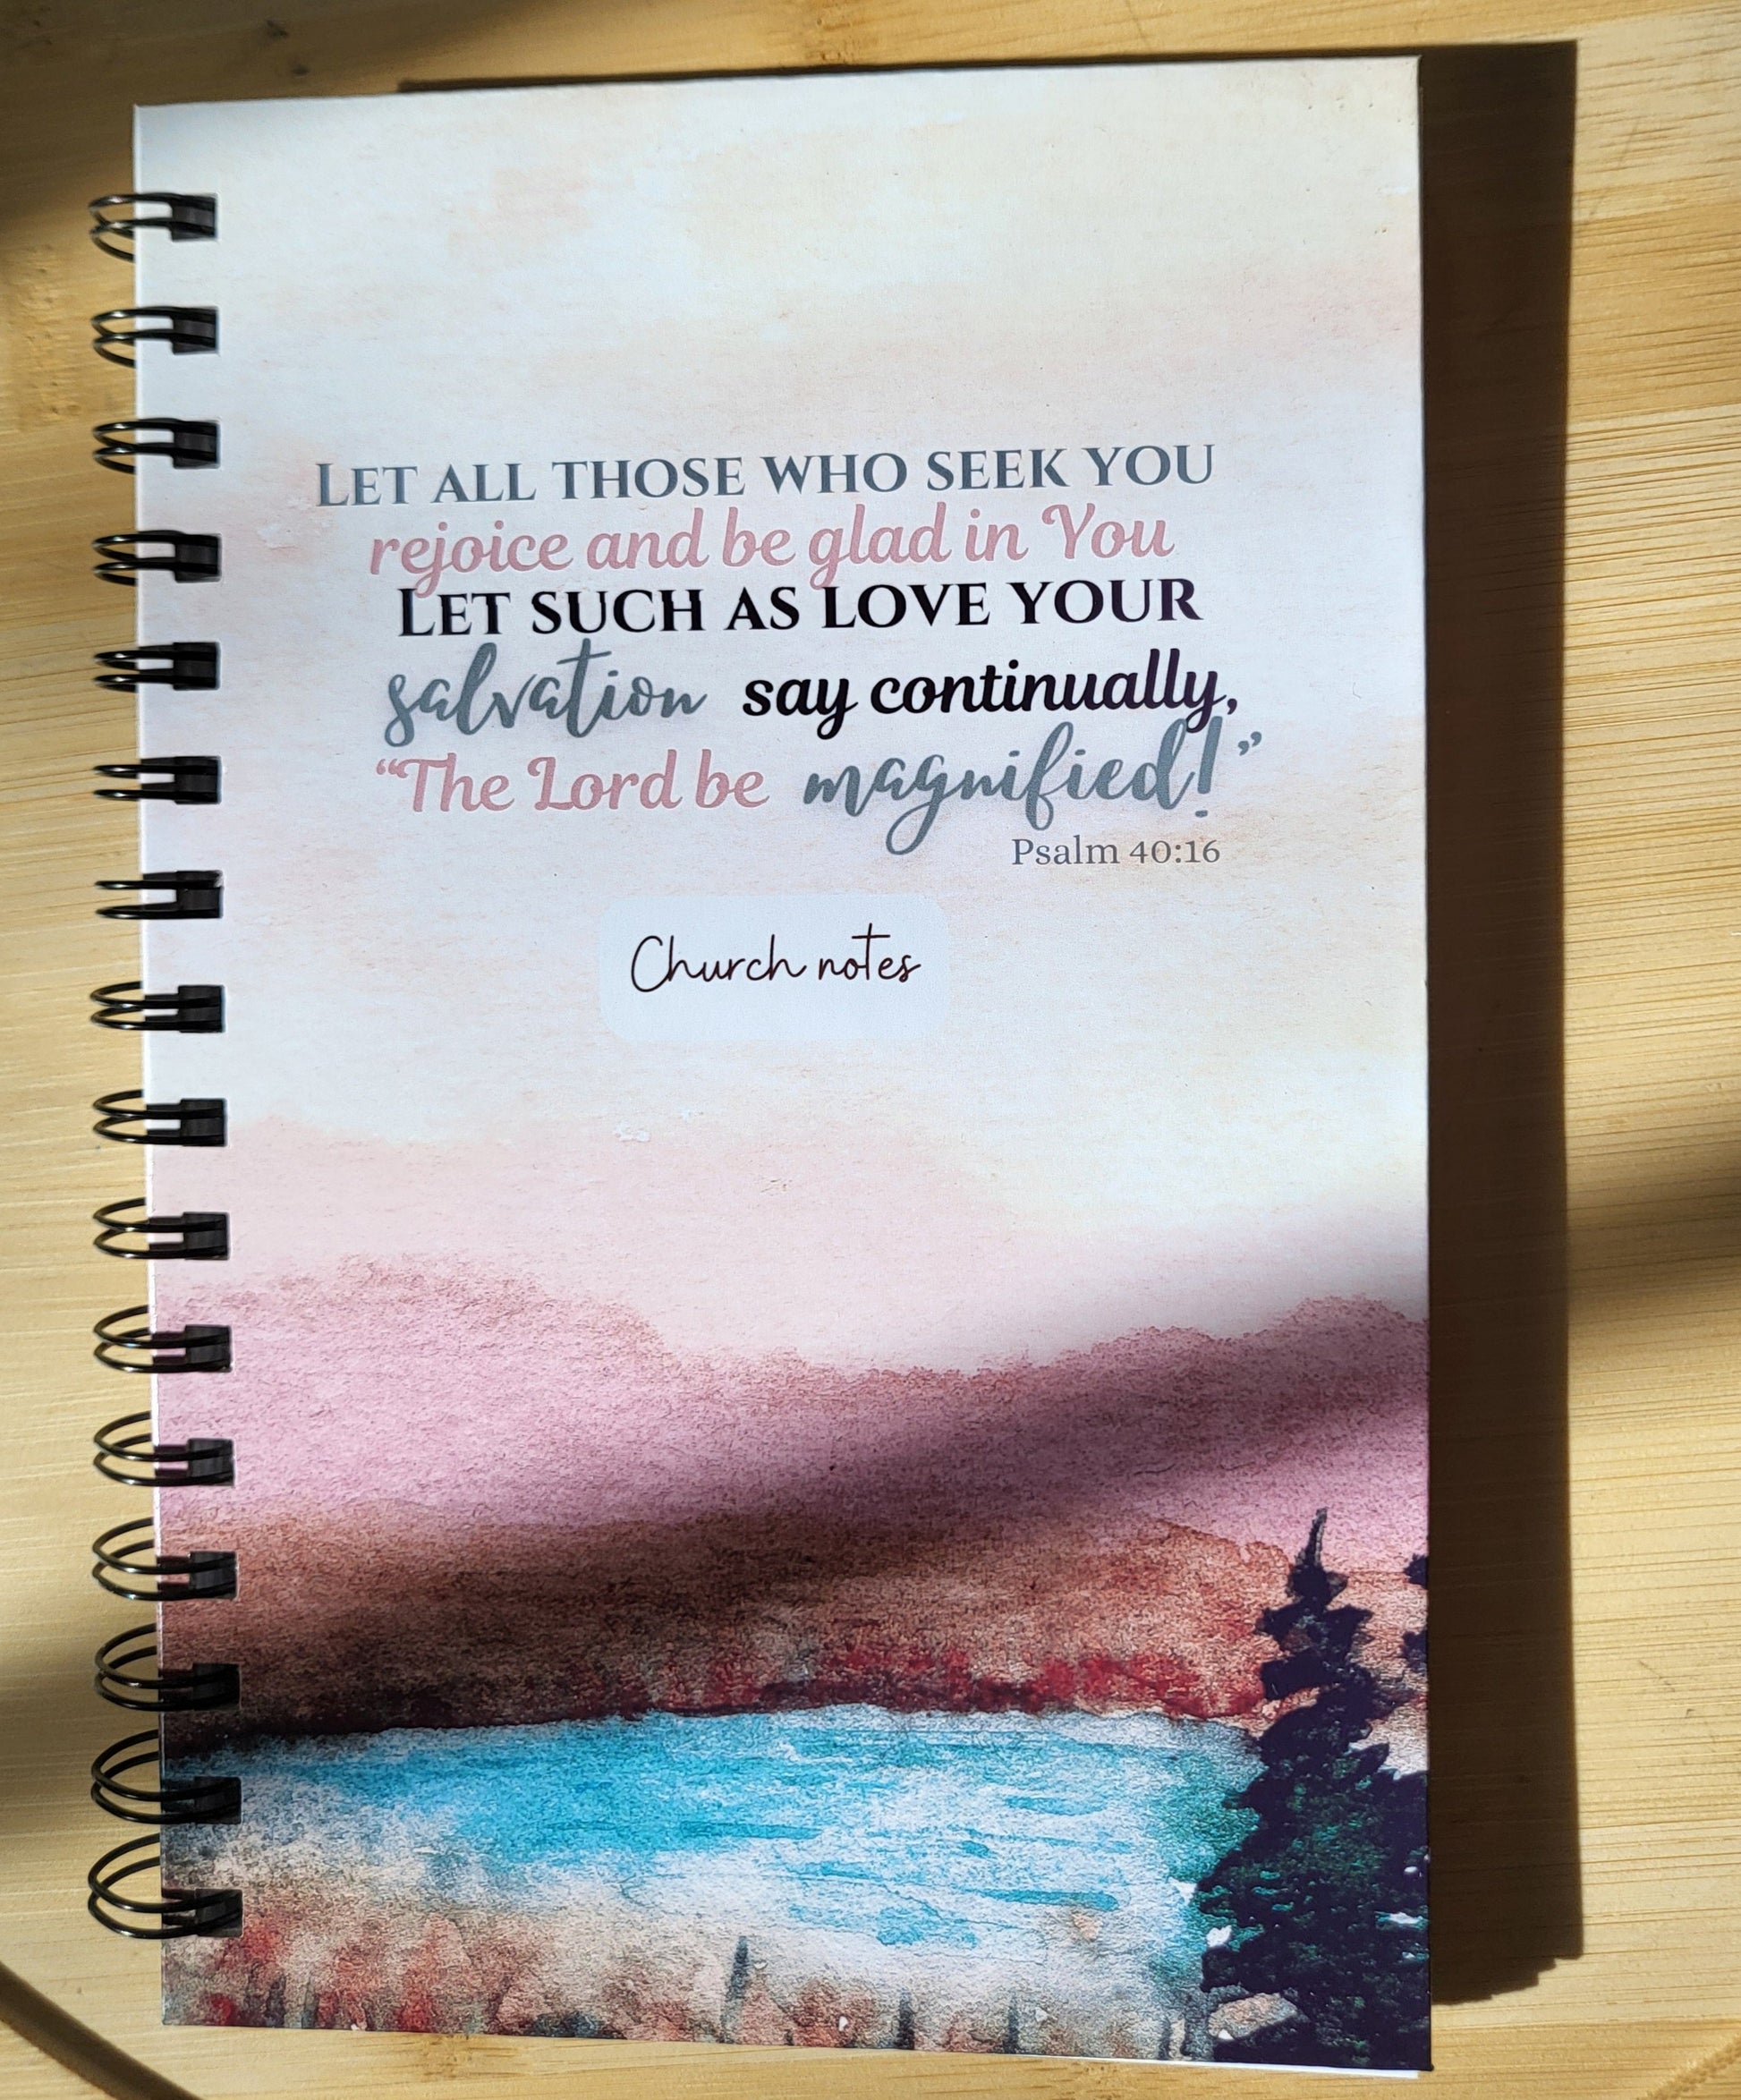 LET ALL THOSE WHO SEEK YOU
rejoice and be glad in You
LET SUCH AS LOVE YOUR
salvation say continually,
“The Lord be magnified!”
Psalm 40:16
Church notes